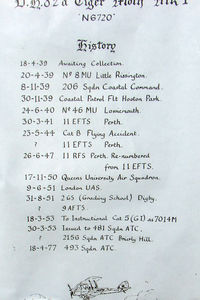 D.H.82a Tiger Moth MK I
'N6720'
History
18-4-39 Awaiting Collection.
20-4-39 Nº 8 MU Little Rissington.
8-11-39 206 Sqdn Coastal Command.
30-11-39 Coastal Patrol Flt Hooton Park.
24-6-40 Nº 46 MU Lossiemouth.
30-3-41 11 EFTS Perth.
23-5-44 Cat B Flying Accident.
? 11 EFTS Perth.
26-6-47 11 RFS Perth. Re-numbered
from 11 EFTS.
17-11-50 Queens University Air Squadron.
9-6-51 London UAS.
31-8-51 2GS (Grading School) Digby.
? 9 AFTS
18-3-53 To Instructional Cat 5(GI) as 7014M
30-3-53 Issued to 481 Sqdn ATC.
? 2156 Sqdn ATC Brierly Hill.
18-4-77 493 Sqdn ATC.